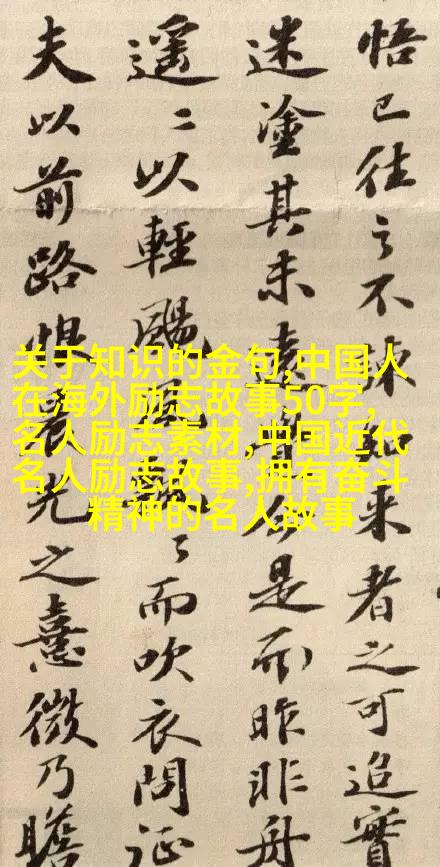 悟已往之不諫知来者之可追實
迷塗其未遠覺今是而昨非舟
遥〻以輕颺風飄〻而吹衣問征
夫以前路恨晨光之熹微乃瞻
关于知识的金句,中国人
在海外励志故事50字,
名人励志素材,中国近代
名人励志故事,拥有奋斗
精神的名人故事